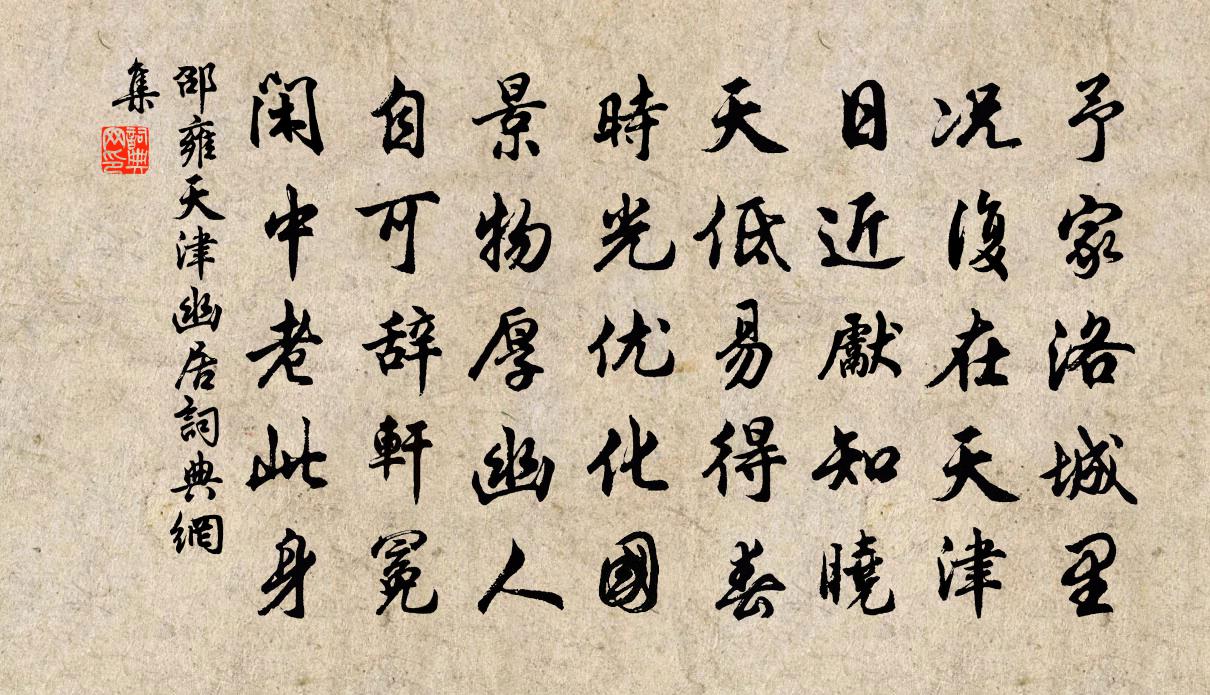 予家洛城里
况復在天津
日近獻知曉
天低易得春
時光优化國
景物厚幽人
自可辞軒冕
閑中老此身
邵雍天津幽居詞典網
集
詞典網印